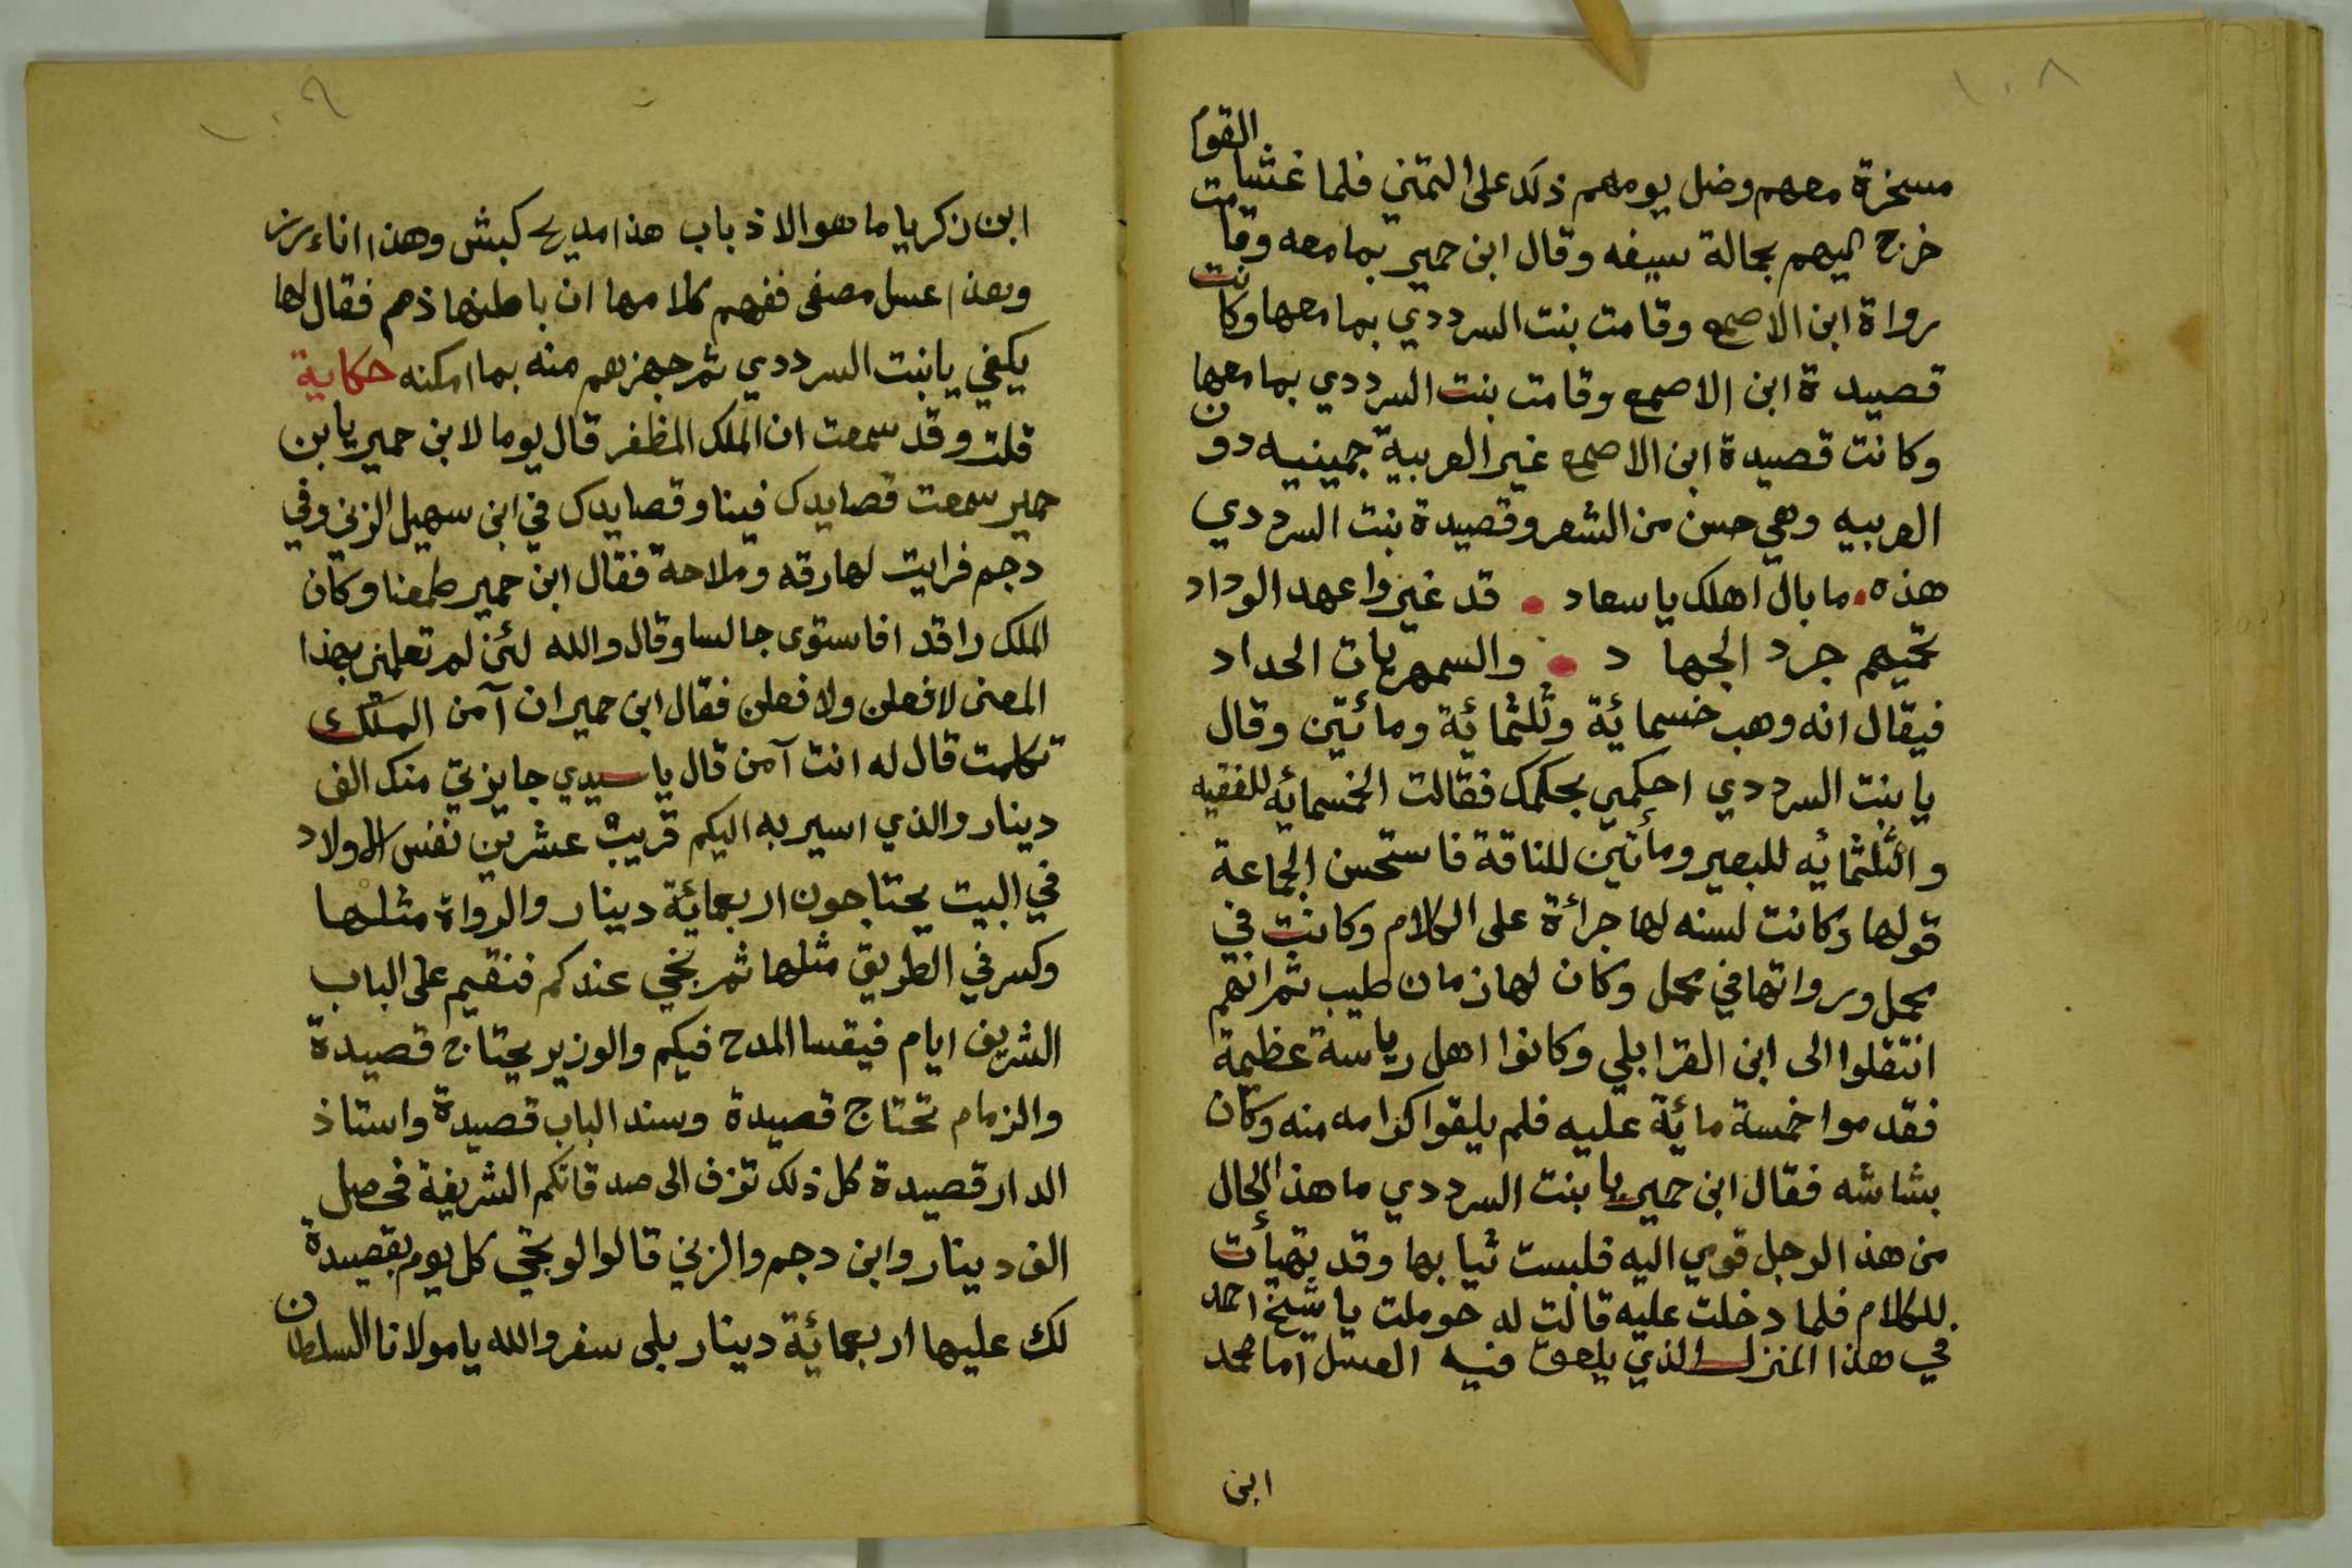 ١٠٨
مسخرة معهم وضل يومهم ذلك على التمني فلما غشيا القوم
خرج اليهم بحالة سيفه وقال ابن حمير بما معه وقامت
رواة ابن الاصمع وقامت بنت السرددي بما معها وكانت
قصيدة ابن الاصمع وقامت بنت السرددي بما معها
وكانت قصيدة ابن الاصمع غير العربية حمينيه دون
العربيه وهي حسن من الشعر وقصيدة بنت السرددي
هذه • ما بال اهلك يا سعاد • قد غيروا عهد الوداد
تحميهم جرد الجهاد • والسمهريات الحداد
فيقال انه وهب خسمائة وثلثمائة ومائتين وقال
يا بنت السرددي احكمي بحكمك فقالت الخسمائه للفقيه
والثلثمائه للبصير ومأتين للناقة فاستحسن الجماعة
قولها وكانت لسنه لها جرائة على الكلام وكانت في
محمل ورواتها في محمل وكان لها زمان طيب ثم انهم
انتقلوا الى ابن القرابلي وكانوا اهل رياسة عظيمة
فقدموا خمسة مائة عليه فلم يلقوا كرامه منه وكان
بشاشه فقال ابن حمير يا بنت السرددي ما هذا الحال
من هذا الرجل قومي اليه فلبست ثيابها وقد تهيأت
للكلام فلما دخلت عليه قالت له حوملت يا شيخ احمد
في هذا المنزل الذي يلعق فيه العسل اما محمد
ابن
١٠٩
ابن زكريا ما هو الا ذباب هذا مديح كبش وهذا اناء رز
وهذا عسل مصفى ففهم كلامها ان باطنها ذم فقال لها
يكفي يا بنت السرددي ثم جهزهم منه بما امكنه حكاية
قلت وقد سمعت ان الملك المظفر قال يوما لابن حمير يا بن
حمير سمعت قصايدك فينا وقصايدك في ابن سهيل الزني وفي
دجم فرايت لها رقه وملاحة فقال ابن حمير طمعنا وكان
الملك راقدا فاستوى جالسا وقال والله لئن لم تعلمني بهذا
المعنى لافعلن ولافعلن فقال ابن حمير ان آمن الملك
تكلمت قال له انت آمن قال يا سيدي جايزتي منك الف
دينار والذي اسير به اليكم قريب عشرين نفس الاولاد
في البيت يحتاجون اربعمائة دينار والرواة مثلها
وكسر في الطريق مثلها ثم نجي عندكم فنقيم على الباب
الشريف ايام فيقسا المدح فيكم والوزير يحتاج قصيدة
والزمام تحتاج قصيدة وسند الباب قصيدة واستاذ
الدار قصيدة كل ذلك تزف الى صدقاتكم الشريفة فحصل
الف دينار وابن دجم والزني قالوا لو تجي كل يوم بقصيدة
لك عليها اربعمائة دينار بلى سفر والله يا مولانا السلطان